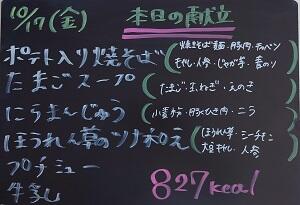 10/17(金) 本日の献立
ポテト入り焼そば(焼きそば麺・豚肉・キャベツ
もやし・人参・じゃが芋・青のり
たまごスープ(たまご・玉ねぎ・えのき
にらまんじゅう(小麦粉・豚ひき肉・ニラ
ほうれん草のツナ和え(ほうれん草・シーチキン
大豆もやし・人参
プロチュー
牛乳
827kcal